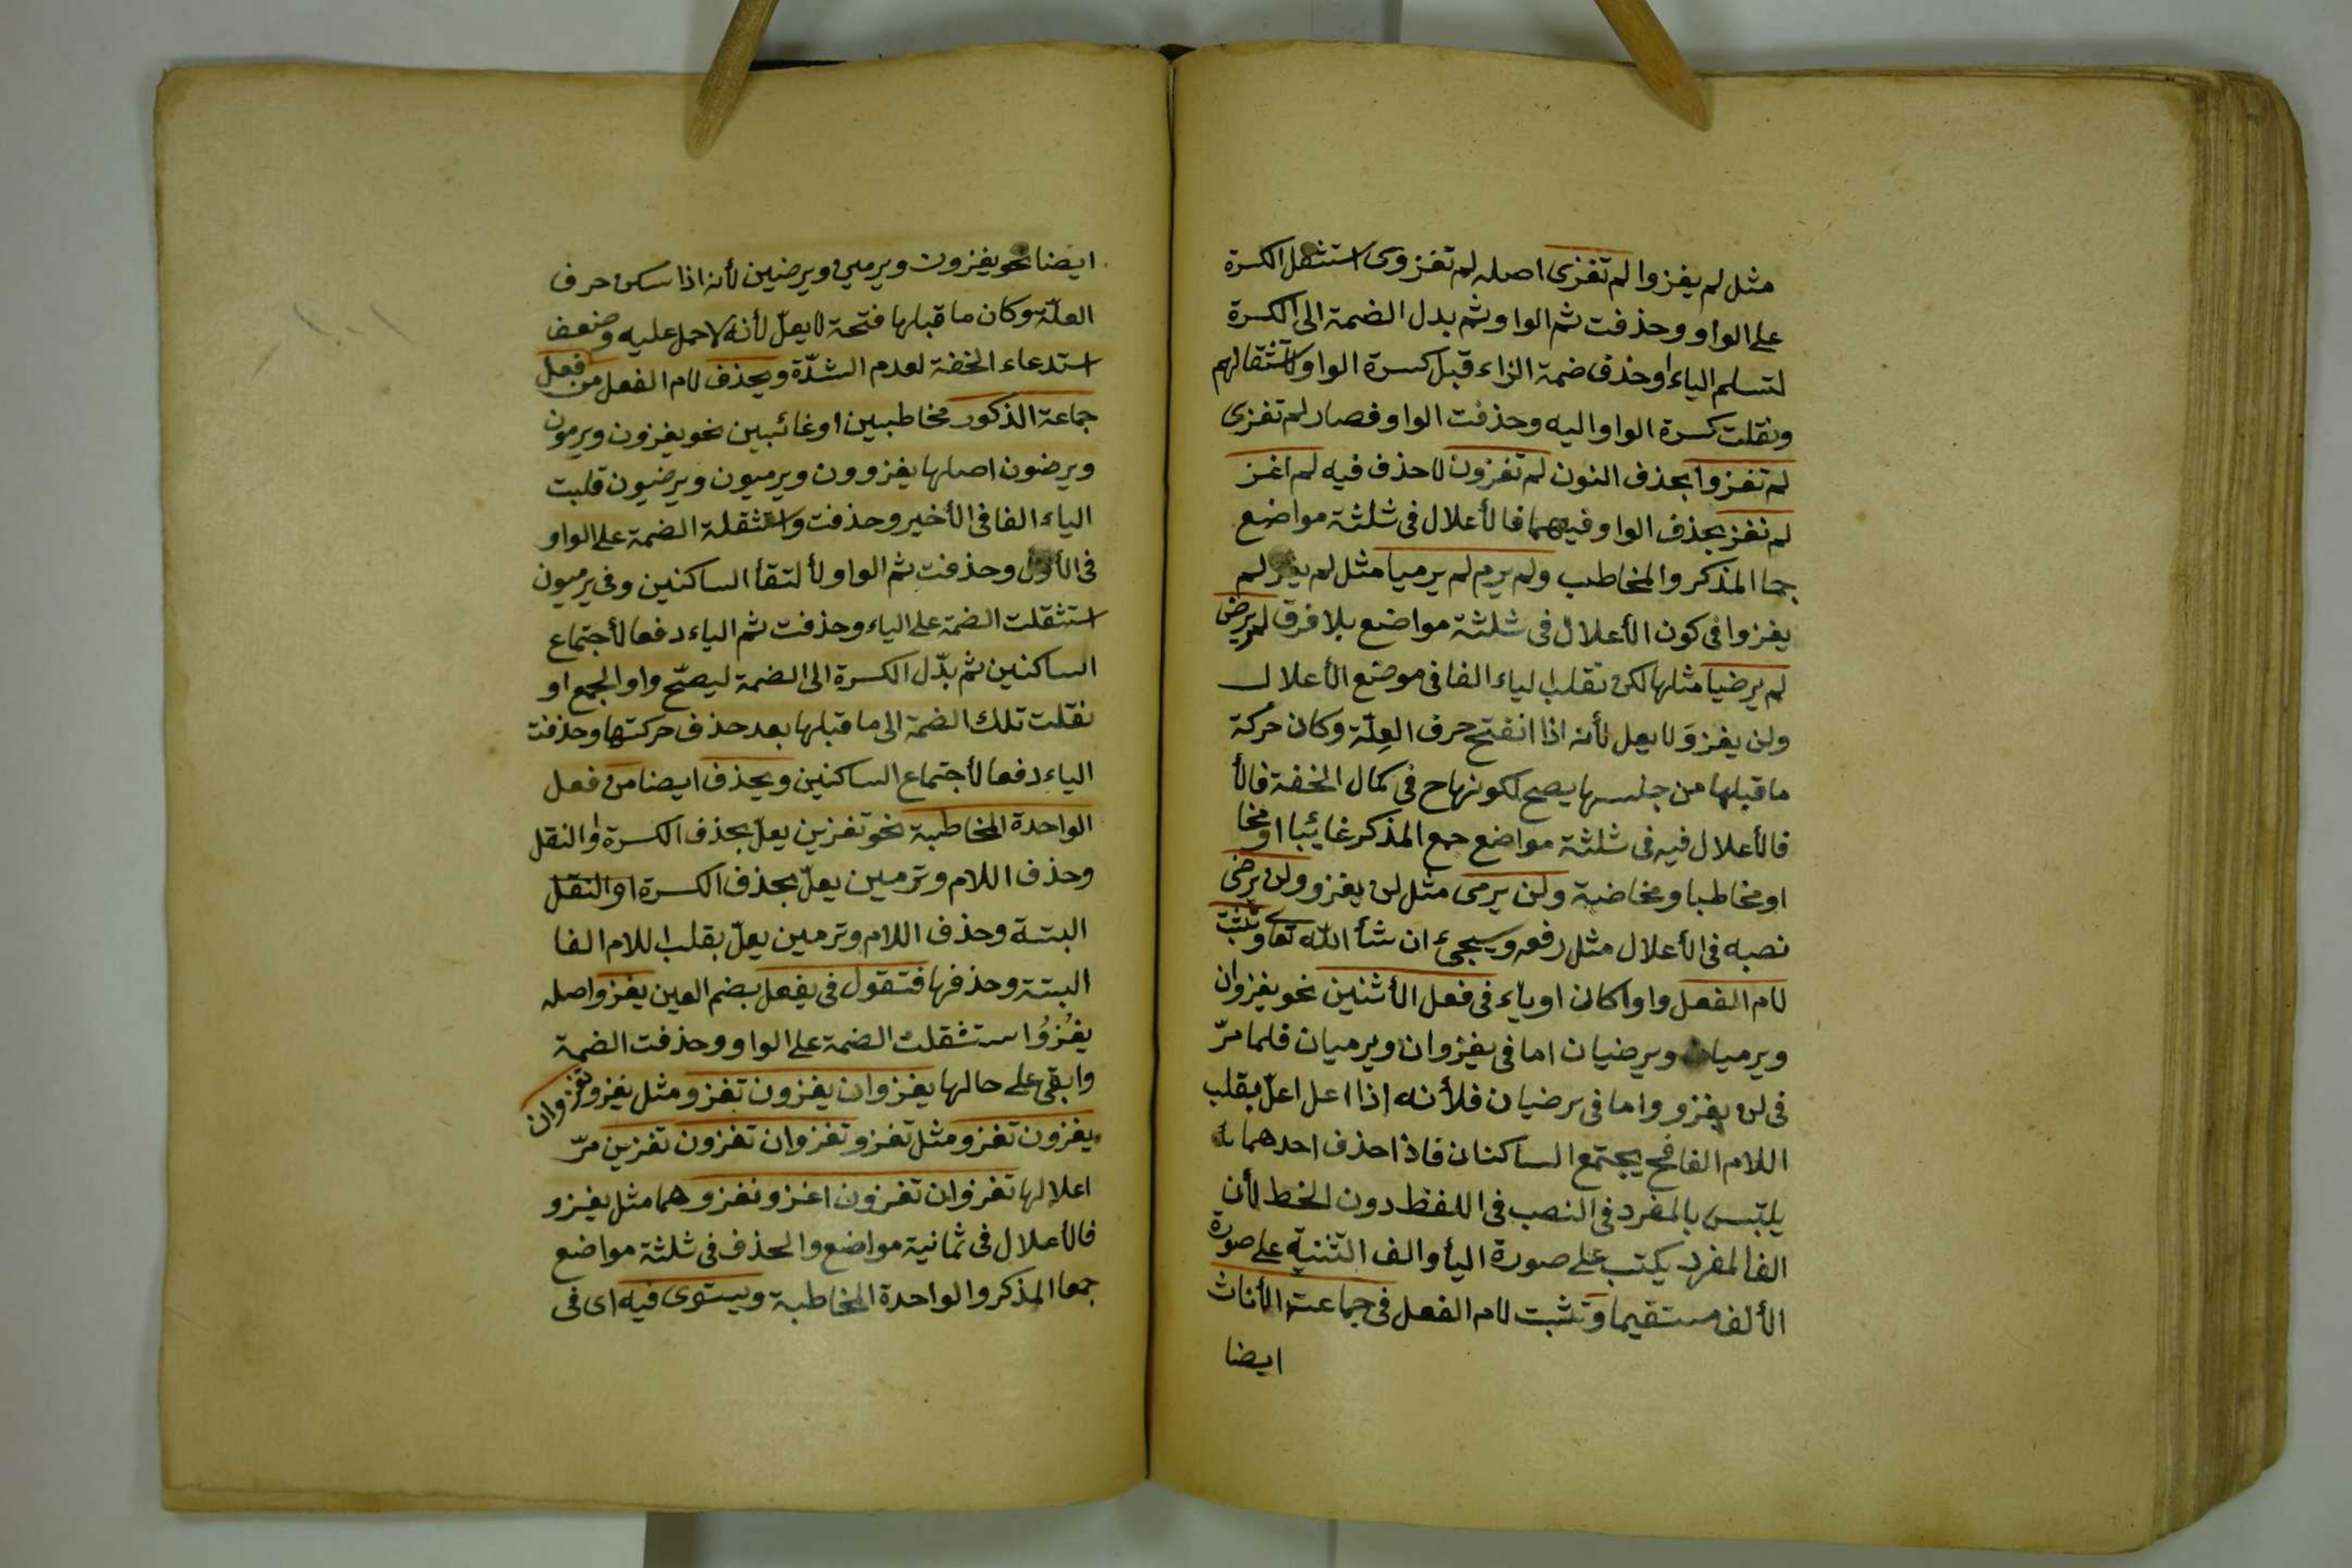 مثل لم يغزوا لم تغزى اصله لم تغزوى استثقل الكسرة
على الواو وحذفت ثم الواو ثم بدل الضمة الى الكسرة
لتسلم الياء او حذف ضمة الزاء قبل كسرة الواو لاستثقالهم
ونقلت كسرة الواو اليه وحذفت الواو فصار لم تغزى
لم تغزوا بحذف النون لم تغزون لا حذف فيه لم اغز
لم نغز بحذف الواو فيهما فالأعلال فى ثلثة مواضع
جما المذكر والمخاطب ولم يرم لم يرميا مثل لم يغز لم
يغزوا فى كون الأعلال فى ثلثة مواضع بلا فرق لم يرض
لم يرضيا مثلها لكن تقلب الياء الفا فى موضع الأعلال
ولن يغزوَ لا يعل لأنه اذا انفتح حرف العِلّة وكان حركة
ما قبلها من جنسها يصح لكونها ح فى كمال الخفة فالأ
فالأعلال فيه فى ثلثة مواضع جمع المذكر غائبا او مخا
او مخاطبا ومخاضبة ولن يرمى مثل لن يغزو ولن يرضى
نصبه فى الأعلال مثل رفعه وسيجىء ان شأ الله تعا وتثبت
لام الفعل واوا كان او ياء فى فعل الأثنين نحو يغزوان
ويرميان ويرضيان اما فى يغزوان ويرميان فلما مرّ
فى لن يغزو واما فى يرضيان فلأنه اذا اعل اعلّ بقلب
اللام الفا فح يجتمع الساكنان فاذا حذف احدهما
يلتبس بالمفرد فى النصب فى اللفظ دون الخط لأن
الف المفرد يكتب على صورة اليأ والف التثنية على صورة
الألف مستقيما وتثبت لام الفعل فى جماعة الأناث
ايضا
ايضا نحو يغزون ويرمين ويرضين لأنه اذا سكن حرف
العلّة وكان ما قبلها فتحة لا يعلّ لأنه لا حمل عليه وضعف
استدعاء الخفة لعدم الشدّة ويحذف لام الفعل من فعل
جماعة الذكور مخاطبين او غائبين نحو يغزون ويرمون
ويرضون اصلها يغزوون ويرميون ويرضيون قلبت
الياء الفا فى الأخير وحذفت واستثقلة الضمة على الواو
فى الأول وحذفت ثم الواو لألتقأ الساكنين وفى يرميون
استثقلت الضمة على الياء وحذفت ثم الياء دفعا لأجتماع
الساكنين ثم بدّل الكسرة الى الضمة ليصحّ واو الجمع او
نقلت تلك الضمة الى ما قبلها بعد حذف حركتها وحذفت
الياء دفعا لأجتماع الساكنين ويحذف ايضا من فعل
الواحدة المخاطبة نحو تغزين يعلّ بحذف الكسرة او النقل
وحذف اللام وترمين يعلّ بحذف الكسرة او النقل
البتة وحذف اللام وترمين يعلّ بقلب اللام الفا
البتة وحذفها فتقول فى يفعل بضم العين يغزو اصله
يغْزُوُ استثقلت الضمة على الواو وحذفت الضمة
وابقى على حالها يغزوان يغزون تغزو مثل يغزو تغزوان
يغزون تغزو مثل تغزو تغزوان تغزون تغزين مرّ
اعلالها تغزوان تغزون اغزو نغزو هما مثل يغزو
فالأعلال فى ثمانية مواضع والحذف فى ثلثة مواضع
جمعا المذكر والواحدة المخاطبة ويستوى فيه اى فى